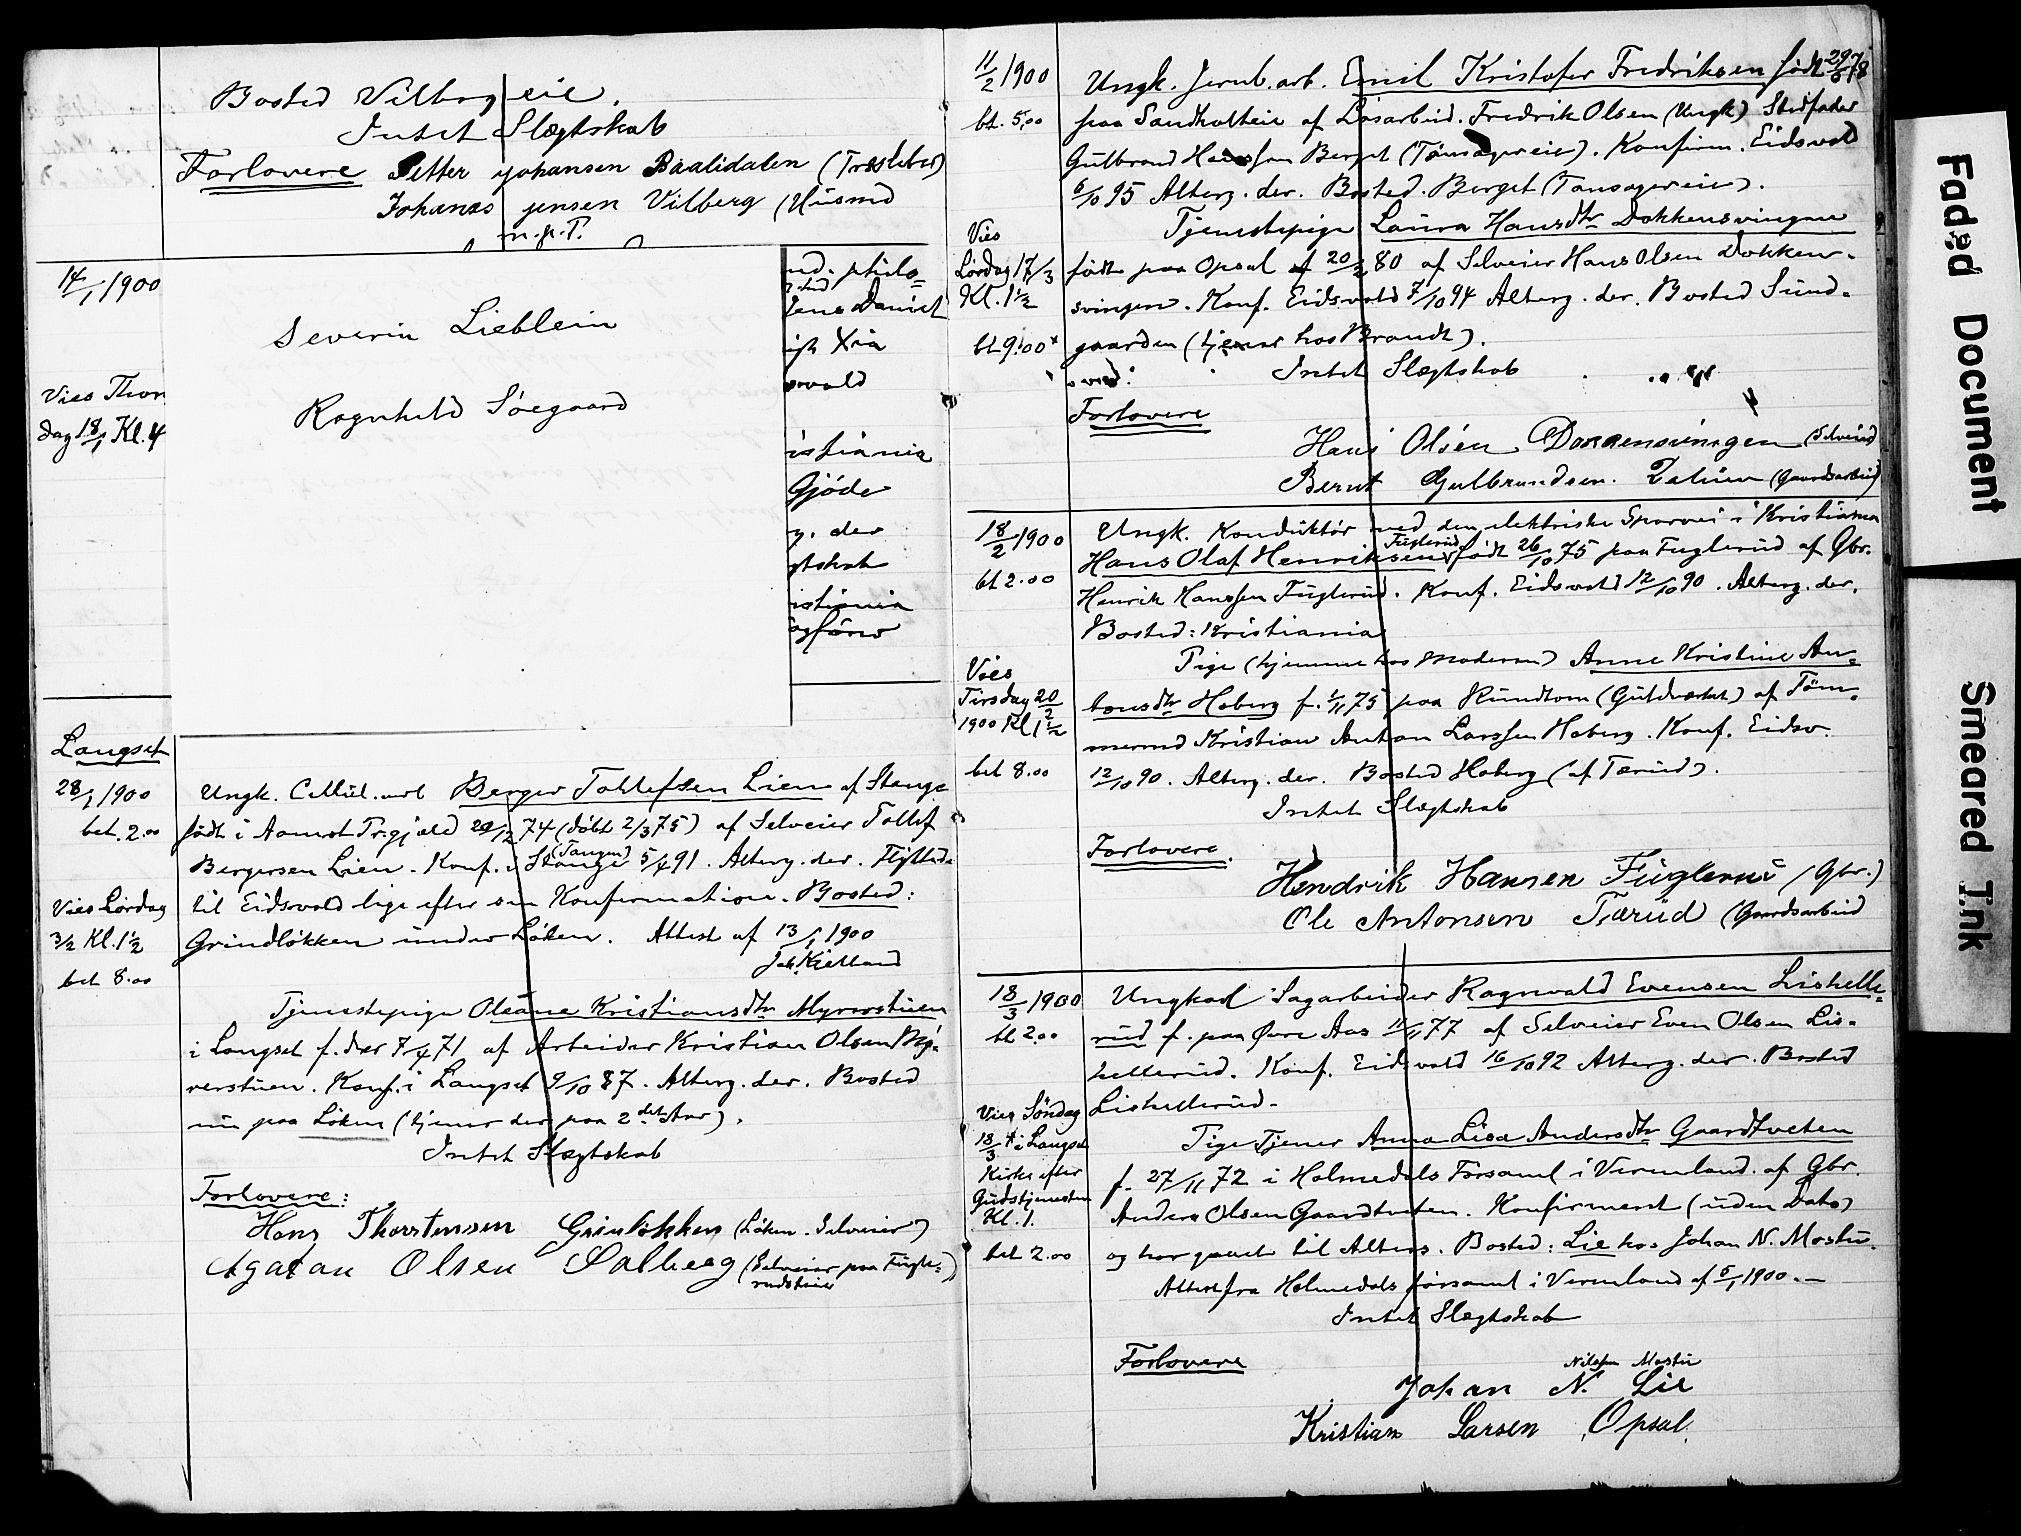 Bosted Vilberg eie.
Intet Slægtskab
Forlovere Petter Johansen Baalidalen (Træsleber)
Johanes Jensen Vilberg (Husmd
m. p. P.
14/1 1900
Severin Lieblein
Ragnhild Söegaard
Vies Thors
dag 18/1 Kl. 4
nd. philo=
Jens Daniel
Xia
svold
istiania
Gjöde
g. der
gtskab
istiania
Langset
28/1 1900
bet. 2.00
Vies Lördag
3/2 Kl. 1 1/2
bet 8.00
Ungk. Cellul. arb Berger Tollefsen Lien af Stange
födt i Aamot Prgjæld 29/12 74 (döbt 2/3 75) af Selveier Tollef
Bergersen Lien. Konf. i Stange (Tangen) 5/4 91. Alterg. der. Flyttede
til Eidsvold lige efter sin Konfirmation. Bosted:
Grindlökken under Löken. Attest af 13/1 1900
Jak. Kielland
Tjenestepige Oleane Kristiansdtr Myrerstuen
i Langset f. der 7/4 71 af Arbeider Kristian Olsen My=
rerstuen. Konf. i Langset 9/10 87. Alterg. der. Bosted
nu paa Löken (tjener der paa 2det Aar).
Intet Slægtskab
Forlovere:
Hans Thorstensen Grinlökken (Löken. Selveier)
Agaton Olsen Solberg (Selveier paa Fugle=
rudseie)
11/2 1900
bt. 5,00
Vies
Lördag 17/3
Kl. 1 1/2
bt 9.00
Ungk. Jernb. arb. Emil Kristofer Fredriksen födt 29/5 78
paa Sandholteie af Lösarbeid. Fredrik Olsen (Ungk) Stedfader
Gulbrand Hanssen Berget (Tönsagereie). Konfirm. Eidsvold
6/10 95 Alterg. der. Bosted. Berget (Tönsagereie).
Tjenestepige Laura Hansdtr Dokkensvingen
födt paa Opsal 20/2 80 af Selveier Hans Olsen Dokken=
svingen. Konf. Eidsvold 7/10 94 Alterg. der. Bosted Sund=
gaarden (tjener hos Brandt).
Intet Slægtskab
Forlovere
Hans Olsen Dokkensvingen (Selveier)
Bernt Gulbrandsen (Gaardsarbeid)
18/2 1900
bt 2.00
Vies
Tirsdag 20/2
1900 Kl 1 1/2
bet 8.00
Ungk. Konduktör ved den elektriske Sporvei i Kristiania
Hans Olaf Henriksen Fuglerud födt 26/10 75 paa Fuglerud af Gbr.
Henrik Hanssen Fuglerud. Konf. Eidsvold 12/10 90. Alterg. der.
Bosted: Kristiania
Pige (hjemme hos Moderen) Anne Kristine An=
tonsdtr Hoberg f. 1/11 75 paa Rundtom (Guldverket) af Töm=
mermd Kristian Anton Larssen Hoberg. Konf. Eidsv.
12/10 90. Alterg. der. Bosted Hoberg (af Tærud).
Intet Slægtskab
Forlovere.
Hendrik Hansen Fuglerud (Gbr.)
Ole Antonsen Tærud (Gaardsarbeid
18/3 1900
bt 2.00
Vies Söndag
18/3 i Langset
Kirke efter
Gudstjenesten
Kl. 1.
bet 2.00
Ungkarl Sagarbeider Ragnvald Evensen Liskelle=
rud f. paa Övre Aas 11/1 77 af Selveier Even Olsen Lis=
kellerud. Konf. Eidsvold 16/10 92 Alterg. der. Bosted
Liskellerud.
Pige Tjener Anna Lisa Andersdtr Gaardtveten
f. 27/11 72 i Holmedals Forsaml i Vermland af Gbr.
Anders Olsen Gaardtveten. Konfirmeret (uden Dato)
og har gaaet til Alters. Bosted: Lie hos Johan N. Mostu.
Attest fra Holmedals forsaml i Vermland af 5/1 1900.—
Intet Slægtskab
Forlovere
Nilssen Mostu
Johan N. Lie
Kristian Larsen Opsal.
Faded Document
Smeared Ink